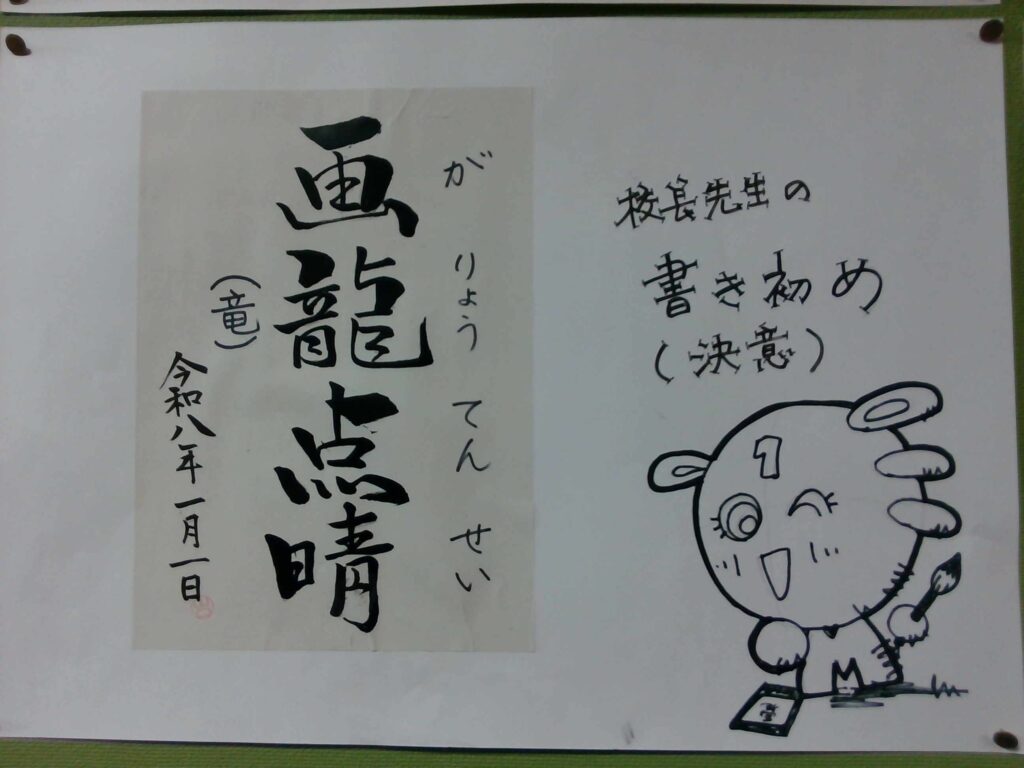 校長先生の
書き初め
(決意)
1
M
が りょう てん せい
画龍点晴
(竜)
令和八年一月一日